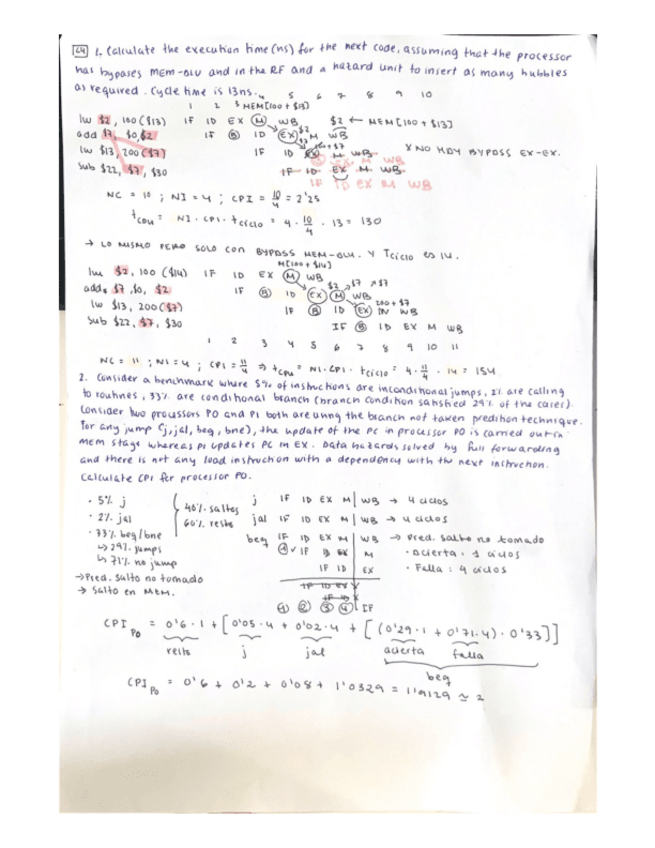 L4 1. Calculate the execution time (ns) for the next code, assuming that the processor
has bypases MEM-ALU and in the RF and a hazard unit to insert as many bubbles
as required. Cycle time is 13ns.
1 2 3 4 5 6 7 8 9 10
MEM[100 + $13]
lw $2, 100 ($13) IF ID EX M WB $2 ← MEM[100 + $13]
add $7, $0, $2 IF B ID EX M WB
lw $13, 200 ($7) IF ID EX M WB X NO HAY BYPASS EX-EX.
EX M WB
sub $22, $7, $30 IF ID EX M WB
IF ID EX M WB
NC = 10 ; NI = 4 ; CPI = 10/4 = 2'25
tcpu = NI · CPI · tciclo = 4 · 10/4 · 13 = 130
→ LO MISMO PERO SOLO CON BYPASS MEM-ALU. Y Tciclo es 14.
M[100 + $14]
lw $2, 100 ($14) IF ID EX M WB
add $7, $0, $2 IF B ID EX M WB
200 + $7
lw $13, 200 ($7) IF B ID EX M WB
sub $22, $7, $30 IF B ID EX M WB
1 2 3 4 5 6 7 8 9 10 11
NC = 11 ; NI = 4 ; CPI = 11/4 ⇒ tcpu = NI · CPI · tciclo = 4 · 11/4 · 14 = 154
2. Consider a benchmark where 5% of instructions are inconditional jumps, 2% are calling
to routines, 33% are conditional branch (branch condition satisfied 29% of the cases).
Consider two processors P0 and P1 both are using the branch not taken predition technique.
For any jump (j, jal, beq, bne), the update of the PC in processor P0 is carried out in
MEM stage whereas P1 updates PC in EX. Data hazards solved by full forwarding
and there is not any load instruction with a dependency with the next instruction.
Calculate CPI for processor P0.
· 5% j
· 2% jal
· 33% beq/bne
↳ 29% jumps
↳ 71% no jump
→ Pred. salto no tomado
→ Salto en MEM.
40% saltos
60% resto
j IF ID EX M WB → 4 ciclos
jal IF ID EX M WB → 4 ciclos
beq IF ID EX M WB → Pred. salto no tomado
IF ID EX M · acierta: 1 ciclos
IF ID EX · Falla: 4 ciclos
IF ID EX
IF ID
1 2 3 4 IF
CPI P0 = 0'6 · 1 + [0'05 · 4 + 0'02 · 4 + [(0'29 · 1 + 0'71 · 4) · 0'33]]
resto j jal acierta falla
beq
CPI P0 = 0'6 + 0'2 + 0'08 + 1'0329 = 1'9129 ≃ 2